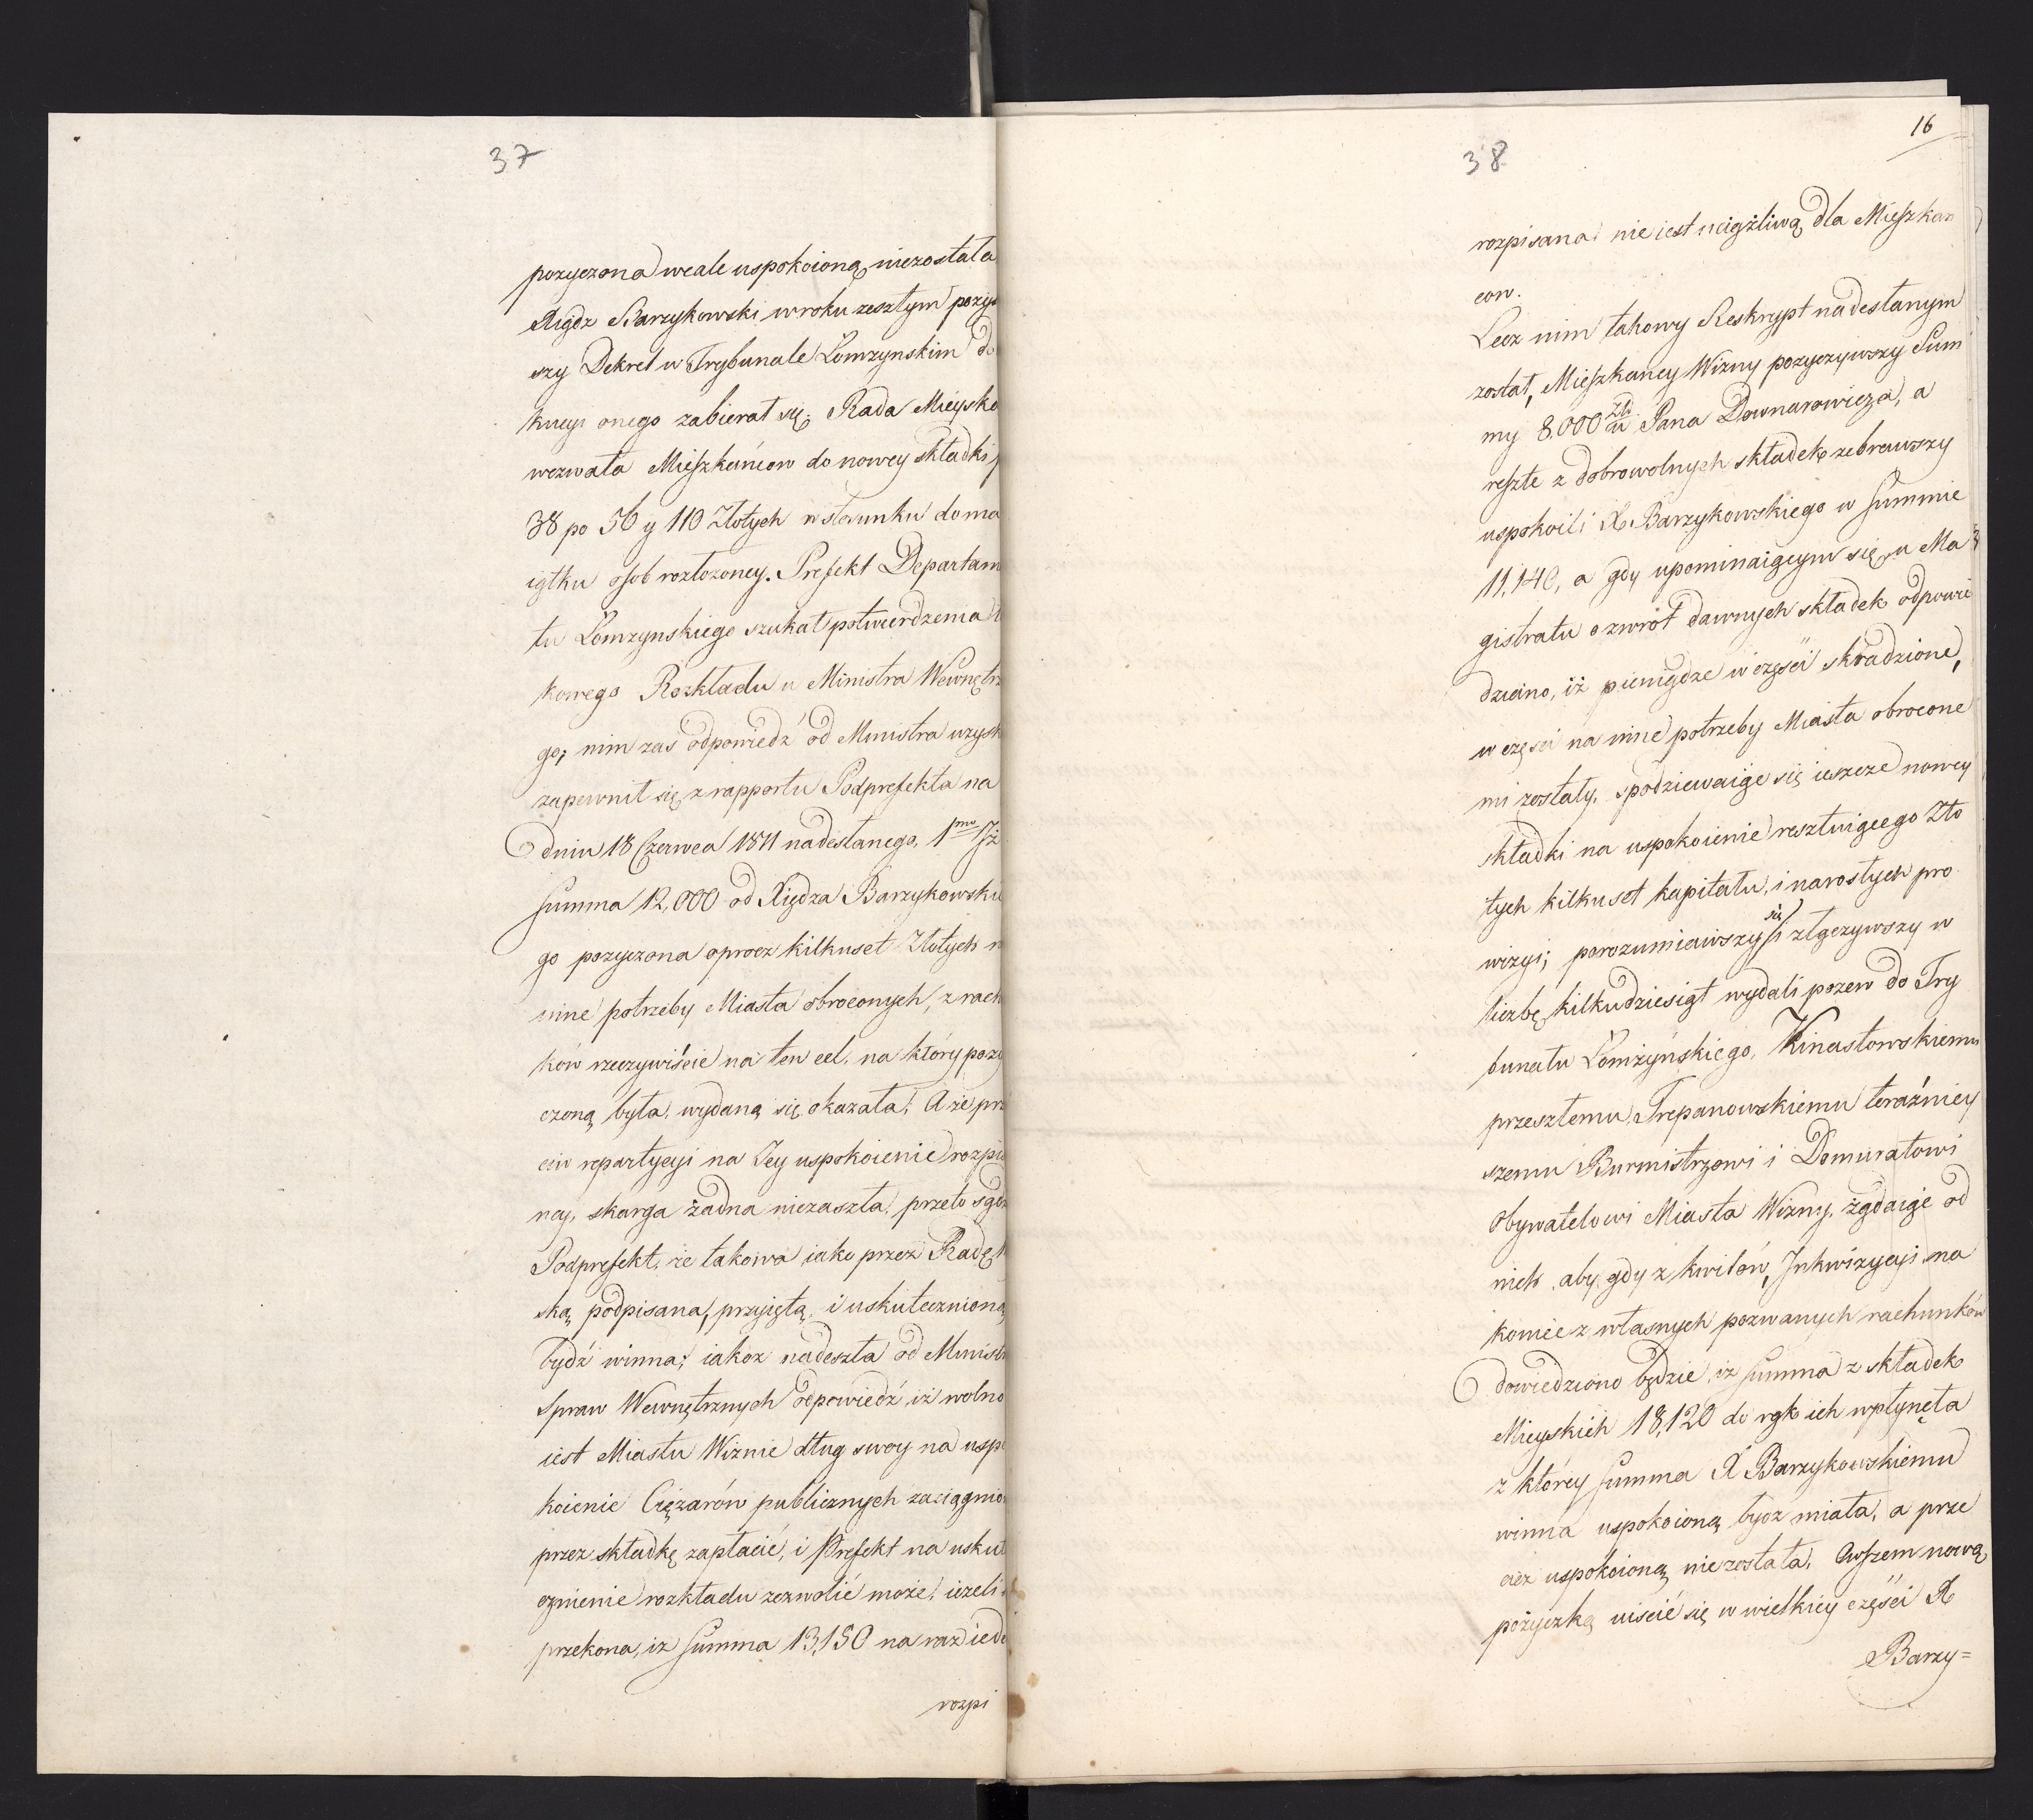 37
pozyczona wcale uspokoioną niezostała
Xiądz Barzykowski w roku zeszłym pozys
szy Dekret w Trybunale Łomzynskim do
kucyi onego zabierał się; Rada Mieysko
wezwała Mieszkańcow do nowey składki p
38 po 56 y 110 Złotych w stosunku doma
iątku osob rozłozoney. Prefekt Departam
tu Łomzynskiego szukał potwierdzenia t
kowego Rozkładu u Ministra Wewnętrz
go; nim zas odpowiedź od Ministra uzysk
zapewnił się z rapportu Podprefekta na
dniu 18 Czerwca 1811 nadesłanego, 1mo Jż
Summa 12,000 od Xiędza Barzykowskie
go pozyczona oprocz kilkuset Złotych n
inne potrzeby Miasta obroconych, z rach
ków rzeczywiście na ten cel, na który pozy
czoną była, wydaną się okazała; A że prz
ciw repartycyi na Jey uspokoienie rozpis
ney, skarga żadna niezaszła, przeto sądz
Podprefekt, że takowa iako przez Radę M
ską podpisana, przyiętą i uskutecznioną
bydź winna; iakoz nadeszła od Ministr
Spraw Wewnętrznych odpowiedź, iż wolno
iest Miastu Wiznie dług swoy na uspo
koienie Ciężarów publicznych zaciągnio
przez składkę zapłacić, i Prefekt na uskut
cznienie rozkładu zezwolić może, ieżeli
przekona, iz Summa 13,150 na raz iede
rozpi
16
38
rozpisana nie iest uciążliwą dla Mieszkan
cow.
Lecz nim takowy Reskrypt nadesłanym
został, Mieszkancy Wizny pozyczywszy Sum
my 8.000 Zł: u Pana Downarowicza, a
resztę z dobrowolnych składek zebrawszy
uspokoili X. Barzykowskiego w Summie
11,140, a gdy upominaiącym się u Ma
gistratu o zwrot dawnych składek odpowie
dziano, iż pieniądze w części skradzione,
w części na inne potrzeby Miasta obrocone
mi zostały. spodziewaiąc się ieszcze nowey
składki na uspokoienie resztuiącego Zło
tych kilkuset kapitału, i narosłych pro
wizyi; porozumiawszy się i złączywszy w
liczbę kilkudziesiąt wydali pozew do Try
bunału Łomżyńskiego, Kinastowskiemu
przeszłemu, Trepanowskiemu teraźniey
szemu Burmistrzowi i Domuratowi
Obywatelowi Miasta Wizny, żądaiąc od
nich aby, gdy z kwitów, Jnkwizycyi na
koniec z własnych pozwanych rachunków
dowiedziono będzie, iż Summa z składek
Mieyskich 18,120 do rąk ich wpłynęła
z którey Summa X Barzykowskiemu
winna uspokoioną bydz miała, a prze
cież uspokoioną nie została, Owszem nową
pożyczką uiscić się w wielkiey części X
Barzy=